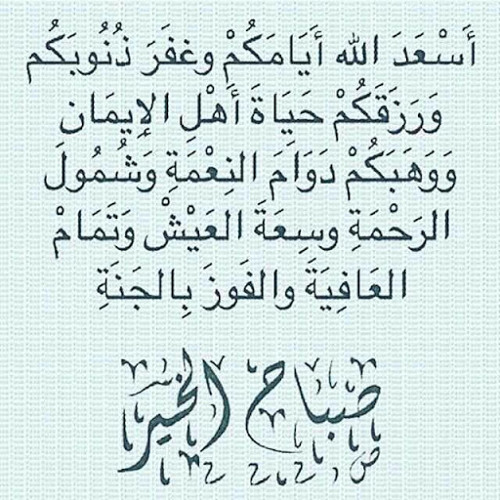 أَسْعَدَ الله أَيَامَكُمْ وغفَرَ ذُنُوبَكُم
وَرَزَقَكُمْ حَيَاةَ أَهْلِ الإِيمَان
وَوَهَبَكُمْ دَوَامَ النِعْمَةِ وَشُمُولَ
الرَحْمَةِ وسِعَةَ العَيْشْ وَتَمَامْ
العَافِيَةَ والفَوزَ بِالجَنَةِ
صباح الخير